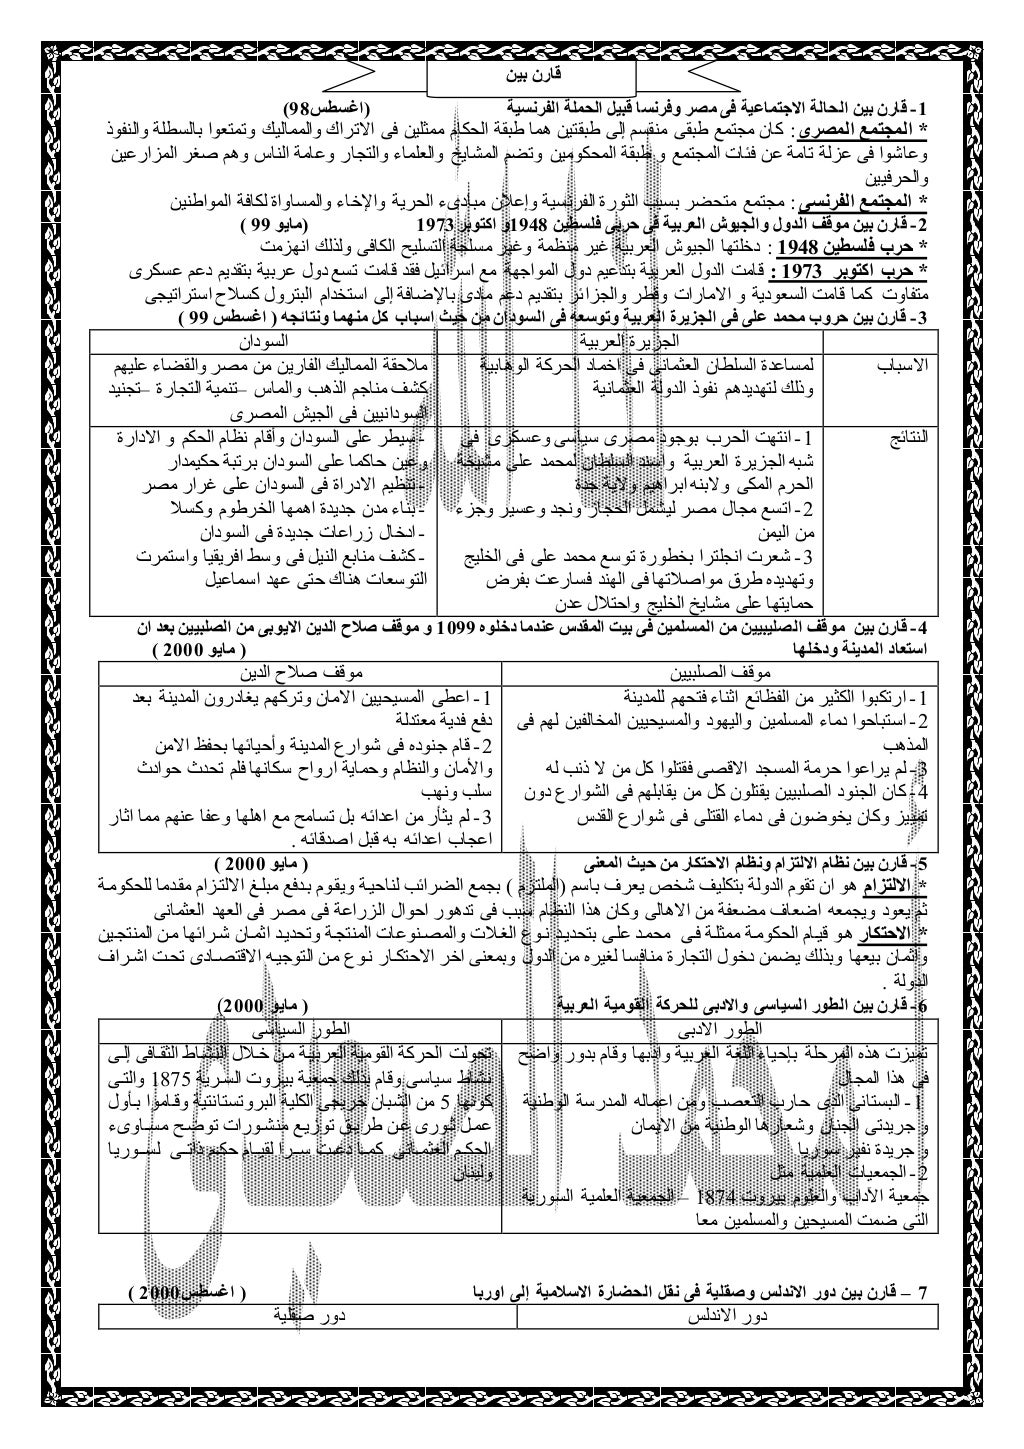 قارن بين
1- قارن بين الحالة الاجتماعية فى مصر وفرنسا قبيل الحملة الفرنسية (اغسطس98)
* المجتمع المصرى : كان مجتمع طبقى منقسم إلى طبقتين هما طبقة الحكام ممثلين فى الاتراك والمماليك وتمتعوا بالسطلة والنفوذ
وعاشوا فى عزلة تامة عن فئات المجتمع و طبقة المحكومين وتضم المشايخ والعلماء والتجار وعامة الناس وهم صغر المزارعين
والحرفيين
* المجتمع الفرنسي : مجتمع متحضر بسبب الثورة الفرنسية وإعلان مبادىء الحرية والإخاء والمساواة لكافة المواطنين
2- قارن بين موقف الدول والجيوش العربية فى حربى فلسطين 1948و اكتوبر 1973 (مايو 99 )
* حرب فلسطين 1948 : دخلتها الجيوش العربية غير منظمة وغير مسلحة التسليح الكافى ولذلك انهزمت
* حرب اكتوبر 1973 : قامت الدول العربية بتدعيم دول المواجهة مع اسرائيل فقد قامت تسع دول عربية بتقديم دعم عسكرى
متفاوت كما قامت السعودية و الامارات وقطر والجزائر بتقديم دعم مادى بالإضافة إلى استخدام البترول كسلاح استراتيجى
3- قارن بين حروب محمد على فى الجزيرة العربية وتوسعه فى السودان من حيث اسباب كل منهما ونتائجه ( اغسطس 99 )
الجزيرة العربية
السودان
الاسباب
لمساعدة السلطان العثمانى فى اخماد الحركة الوهابية
وذلك لتهديدهم نفوذ الدولة العثمانية
ملاحقة المماليك الفارين من مصر والقضاء عليهم
كشف مناجم الذهب والماس –تنمية التجارة –تجنيد
السودانيين فى الجيش المصرى
النتائج
1- انتهت الحرب بوجود مصرى سياسى وعسكرى فى
شبه الجزيرة العربية واسند السلطان لمحمد على مشيخة
الحرم المكى ولابنه ابراهيم ولاية جدة
2- اتسع مجال مصر ليشمل الحجاز ونجد وعسير وجزء
من اليمن
3- شعرت انجلترا بخطورة توسع محمد على فى الخليج
وتهديده طرق مواصلاتها فى الهند فسارعت بفرض
حمايتها على مشايخ الخليج واحتلال عدن
- سيطر على السودان وأقام نظام الحكم و الادارة
وعين حاكما على السودان برتبة حكيمدار
- تنظيم الادراة فى السودان على غرار مصر
- بناء مدن جديدة اهمها الخرطوم وكسلا
- ادخال زراعات جديدة فى السودان
- كشف منابع النيل فى وسط افريقيا واستمرت
التوسعات هناك حتى عهد اسماعيل
4- قارن بين موقف الصليبيين من المسلمين فى بيت المقدس عندما دخلوه 1099 و موقف صلاح الدين الايوبى من الصلبيين بعد ان
استعاد المدينة ودخلها ( مايو 2000 )
موقف الصلبيين
موقف صلاح الدين
1- ارتكبوا الكثير من الفظائع اثناء فتحهم للمدينة
2- استباحوا دماء المسلمين واليهود والمسيحيين المخالفين لهم فى
المذهب
3- لم يراعوا حرمة المسجد الاقصى فقتلوا كل من لا ذنب له
4- كان الجنود الصلبيين يقتلون كل من يقابلهم فى الشوارع دون
تمييز وكان يخوضون فى دماء القتلى فى شوارع القدس
1- اعطى المسيحيين الامان وتركهم يغادرون المدينة بعد
دفع فدية معتدلة
2- قام جنوده فى شوارع المدينة وأحيائها بحفظ الامن
والأمان والنظام وحماية ارواح سكانها فلم تحدث حوادث
سلب ونهب
3- لم يثأر من اعدائه بل تسامح مع اهلها وعفا عنهم مما اثار
اعجاب اعدائه به قبل اصدقائه .
5- قارن بين نظام الالتزام ونظام الاحتكار من حيث المعنى ( مايو 2000 )
* الالتزام هو ان تقوم الدولة بتكليف شخص يعرف باسم (الملتزم ) بجمع الضرائب لناحية ويقوم بدفع مبلغ الالتزام مقدما للحكومة
ثم يعود ويجمعه اضعاف مضعفة من الاهالى وكان هذا النظام سبب فى تدهور احوال الزراعة فى مصر فى العهد العثمانى
* الاحتكار هو قيام الحكومة ممثلة فى محمد على بتحديد نوع الغلات والمصنوعات المنتجة وتحديد اثمان شرائها من المنتجين
واثمان بيعها وبذلك يضمن دخول التجارة منافسا لغيره من الدول وبمعنى اخر الاحتكار نوع من التوجيه الاقتصادى تحت اشراف
الدولة .
6- قارن بين الطور السياسى والادبى للحركة القومية العربية ( مايو 2000)
الطور الادبى
الطور السياسى
تميزت هذه المرحلة بإحياء اللغة العربية وادبها وقام بدور واضح
فى هذا المجال
1- البستانى الذى حارب التعصب ومن اعماله المدرسة الوطنية
و جريدتى الجنان وشعارها الوطنية من الايمان
و جريدة نفير سوريا
2- الجمعيات العلمية مثل
جمعية الآداب والعلوم بيروت 1874 – الجمعية العلمية السورية
التى ضمت المسيحين والمسلمين معا
تحولت الحركة القومية العربية من خلال النشاط الثقافى إلى
نشاط سياسى وقام بذلك جمعية بيروت السرية 1875 والتى
كونها 5 من الشبان خريجى الكلية البروتستانتية وقاموا بأول
عمل ثورى عن طريق توزيع منشورات توضح مساوىء
الحكم العثمانى كما دعت سرا لقيام حكم ذاتى لسوريا
ولبنان
7 – قارن بين دور الاندلس وصقلية فى نقل الحضارة الاسلامية إلى اوربا ( اغسطس2000 )
دور الاندلس
دور صقلية